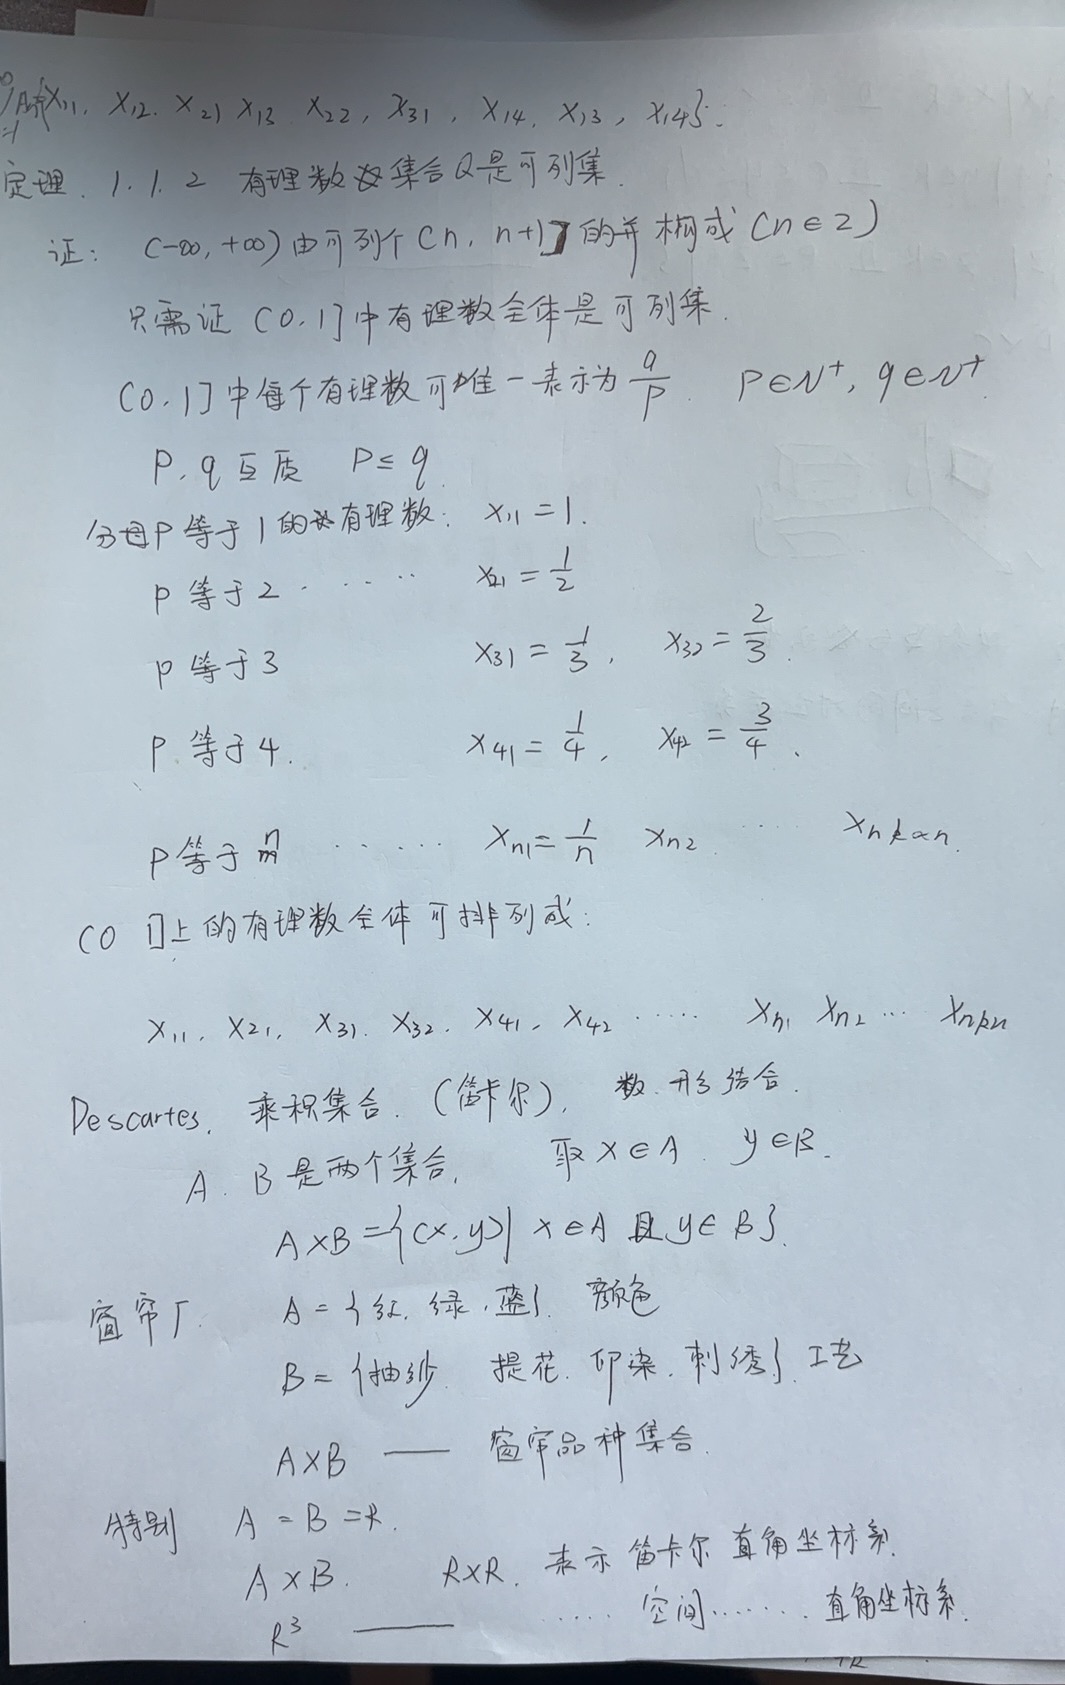 x₁₁, x₁₂, x₂₁ x₁₃ x₂₂, x₃₁, x₁₄, x₁₃, x₁₄}.
定理. 1.1.2 有理数集合Q是可列集.
证: (-∞, +∞)由可列个(n, n+1]的并构成(n∈Z)
只需证(0.1]中有理数全体是可列集.
(0,1]中每个有理数可唯一表示为 q/p. P∈N⁺, q∈N⁺
P.q互质 P≤q.
分母P等于1的有理数: x₁₁=1.
P等于2 ····· x₂₁=1/2
P等于3 x₃₁=1/3, x₃₂=2/3.
P.等于4. x₄₁=1/4, x₄₂=3/4.
P等于n ······ xₙ₁=1/n xₙ₂ ····
(0 1]上的有理数全体可排列成:
x₁₁, x₂₁, x₃₁. x₃₂. x₄₁, x₄₂ ····· xₙ₁ xₙ₂ ···
Descartes. 乘积集合. (笛卡尔), 数.形结合.
A. B是两个集合, 取x∈A. y∈B.
A×B={(x,y)| x∈A 且y∈B}.
窗帘厂. A={红.绿.蓝}. 颜色
B={抽纱 提花.印染.刺绣}.工艺
A×B —— 窗帘品种集合.
特别 A=B=R.
A×B. R×R. 表示笛卡尔直角坐标系.
R³ —— ····· 空间······直角坐标系.